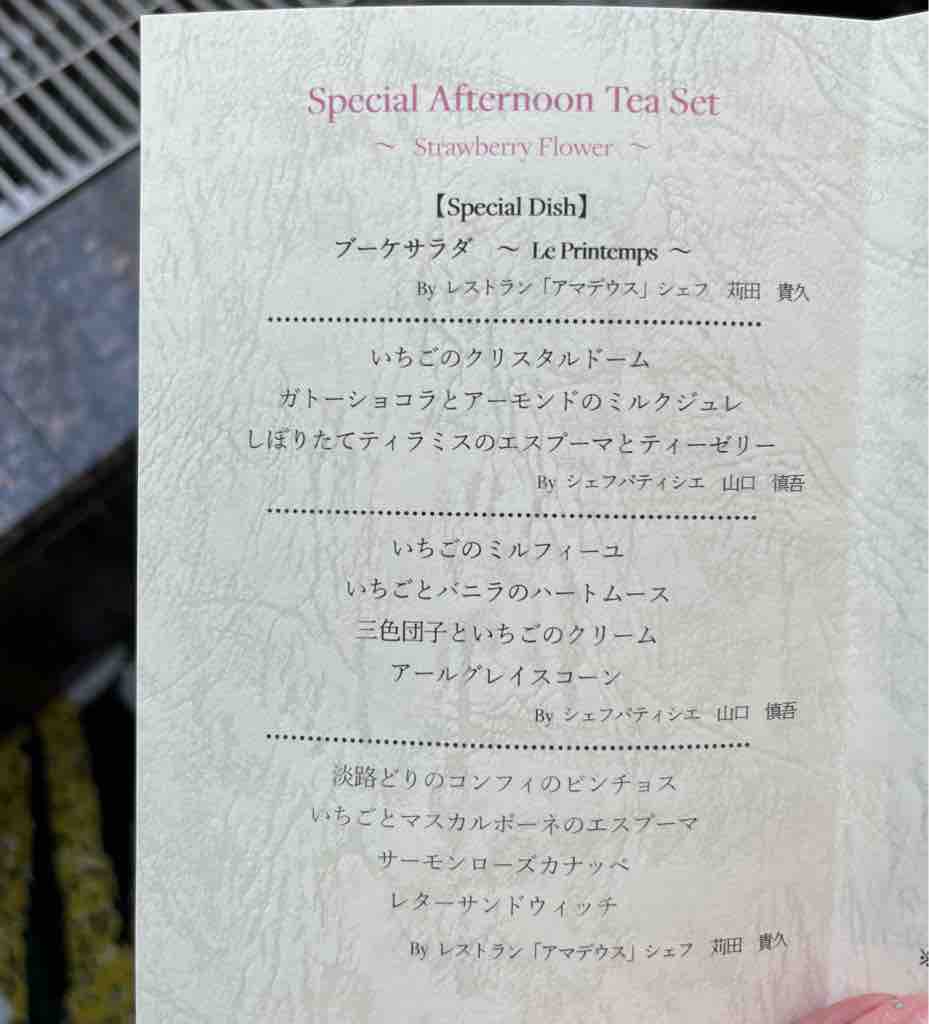 Special Afternoon Tea Set
～ Strawberry Flower ～
【Special Dish】
ブーケサラダ ～ Le Printemps ～
By レストラン「アマデウス」シェフ 苅田 貴久
いちごのクリスタルドーム
ガトーショコラとアーモンドのミルクジュレ
しぼりたてティラミスのエスプーマとティーゼリー
By シェフパティシエ 山口 慎吾
いちごのミルフィーユ
いちごとバニラのハートムース
三色団子といちごのクリーム
アールグレイスコーン
By シェフパティシエ 山口 慎吾
淡路どりのコンフィのピンチョス
いちごとマスカルポーネのエスプーマ
サーモンローズカナッペ
レターサンドウィッチ
By レストラン「アマデウス」シェフ 苅田 貴久
※